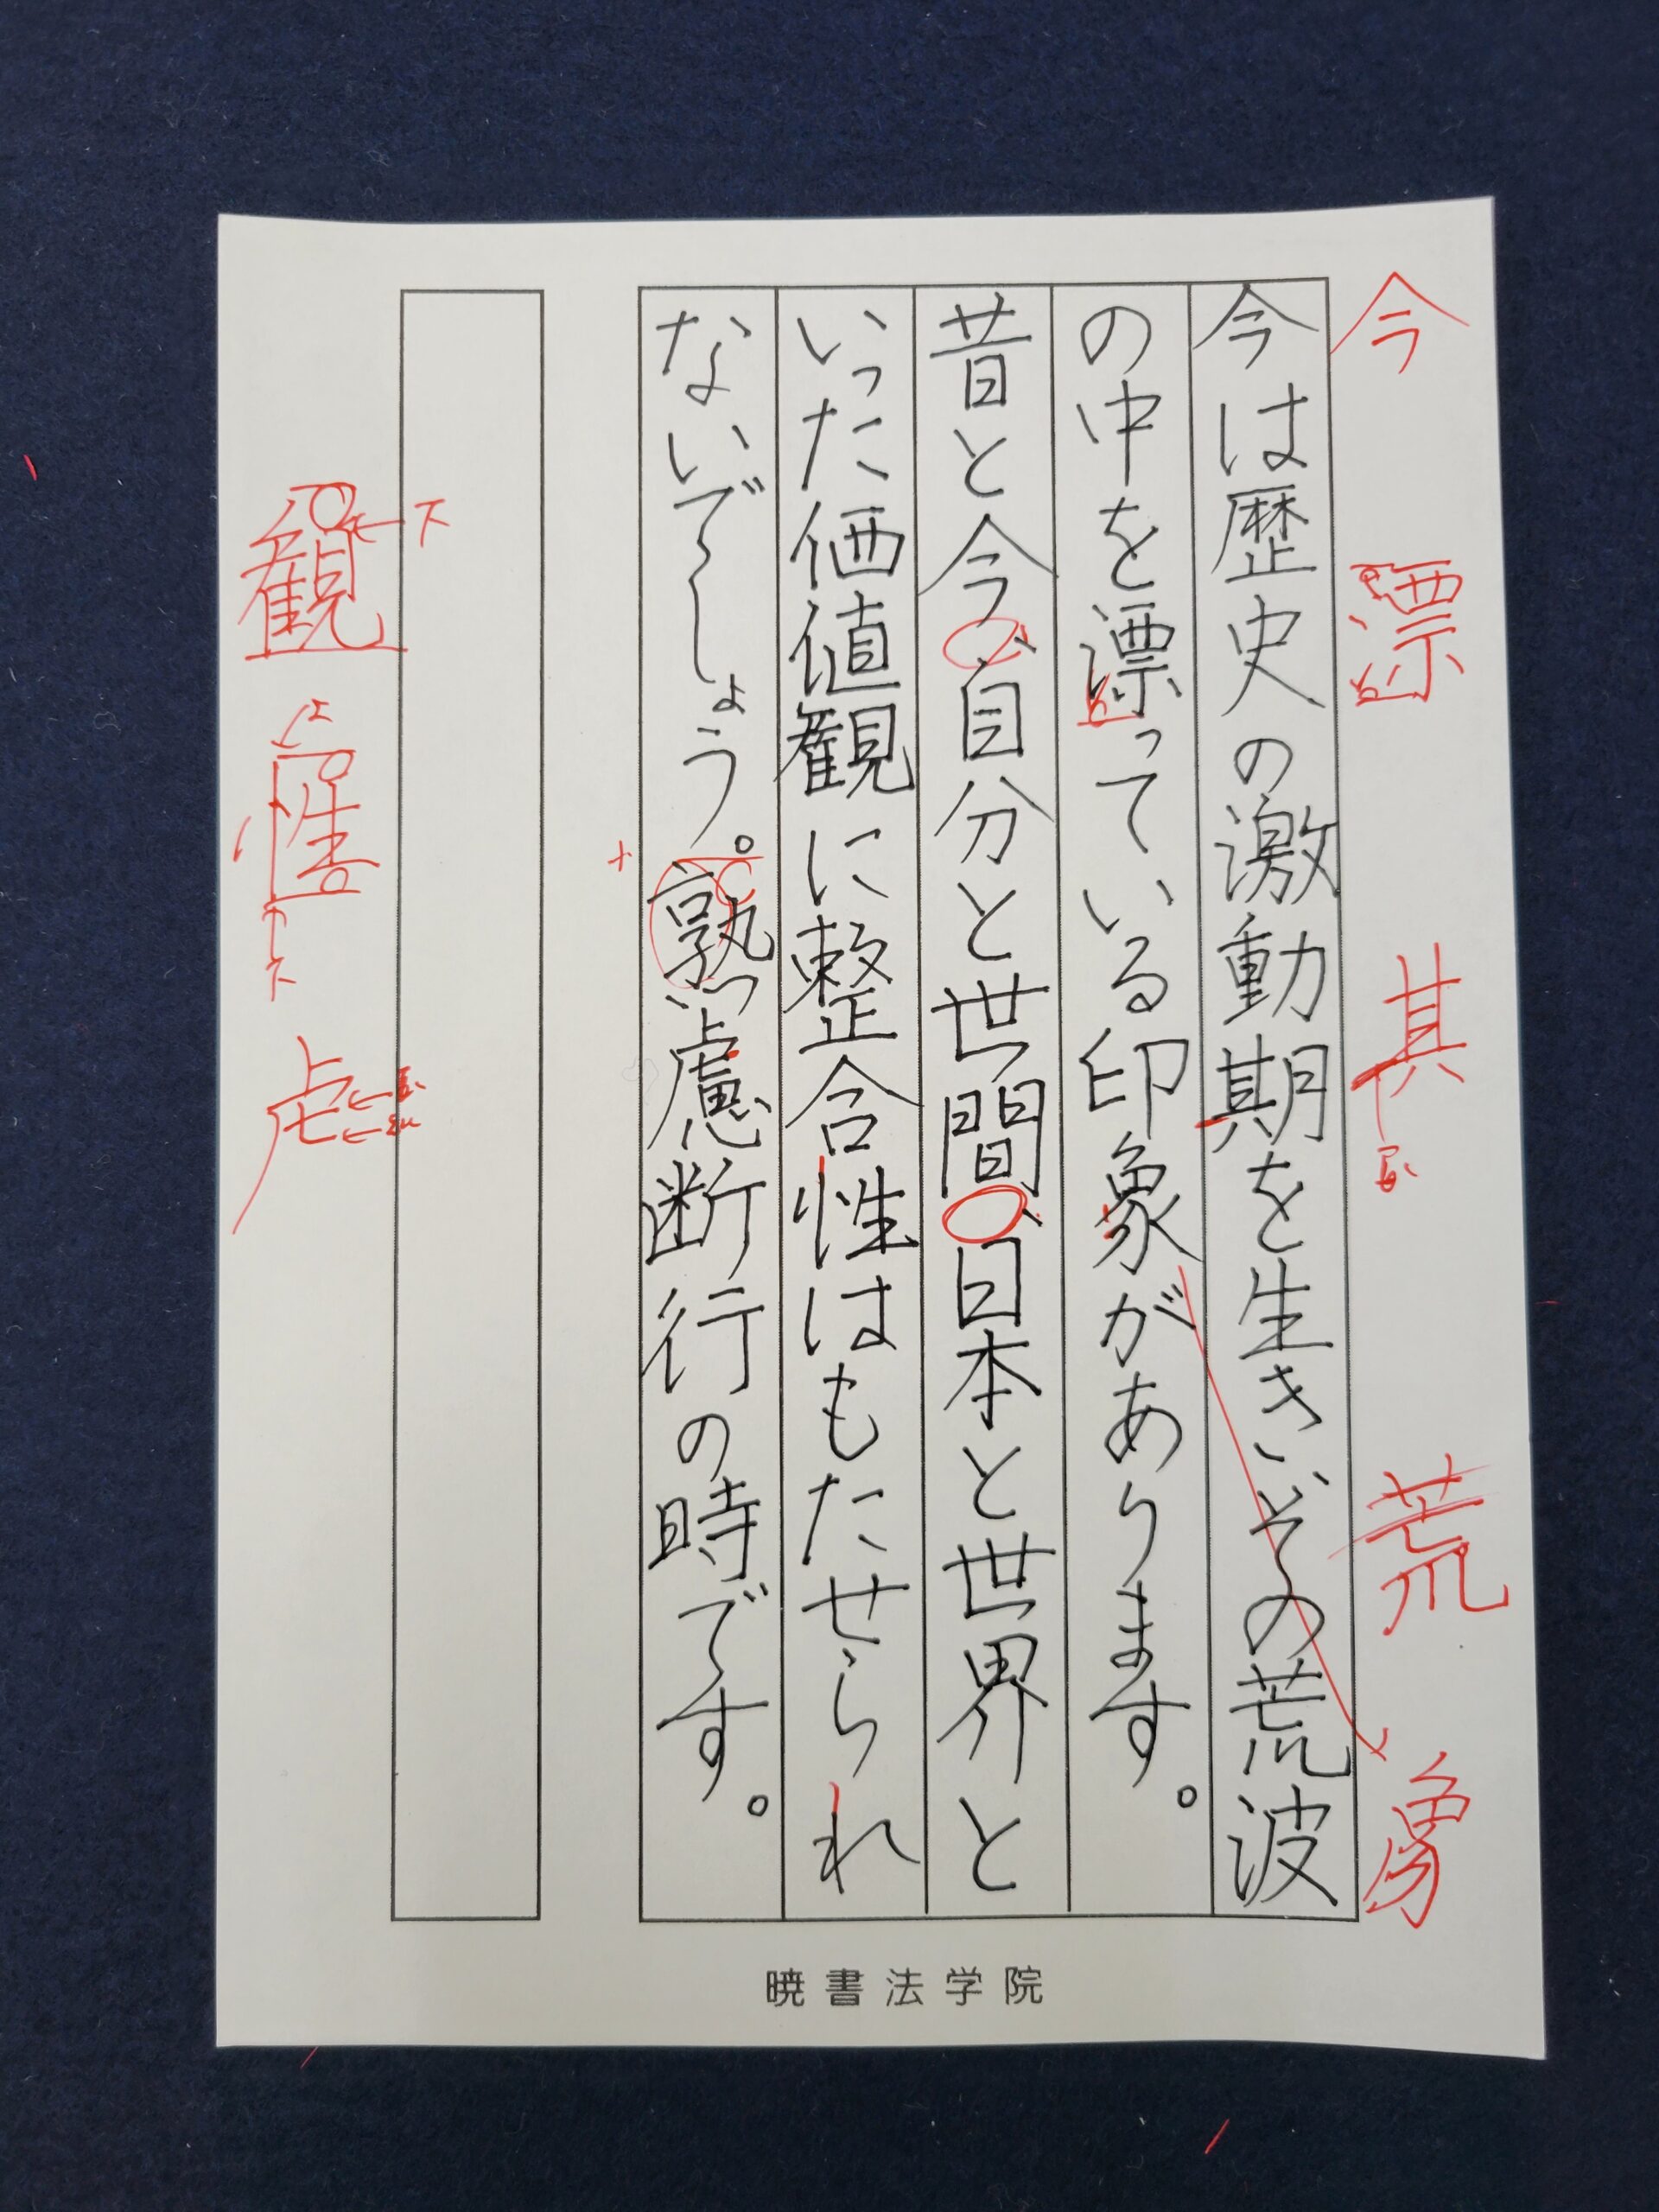 今は歴史の激動期を生き、その荒波
の中を漂っている印象があります。
昔と今、自分と世間、日本と世界と
いった価値観に整合性はもたせられ
ないでしょう。熟慮断行の時です。
今
漂
其
荒
象
下
観
上
性
下
暁書法学院